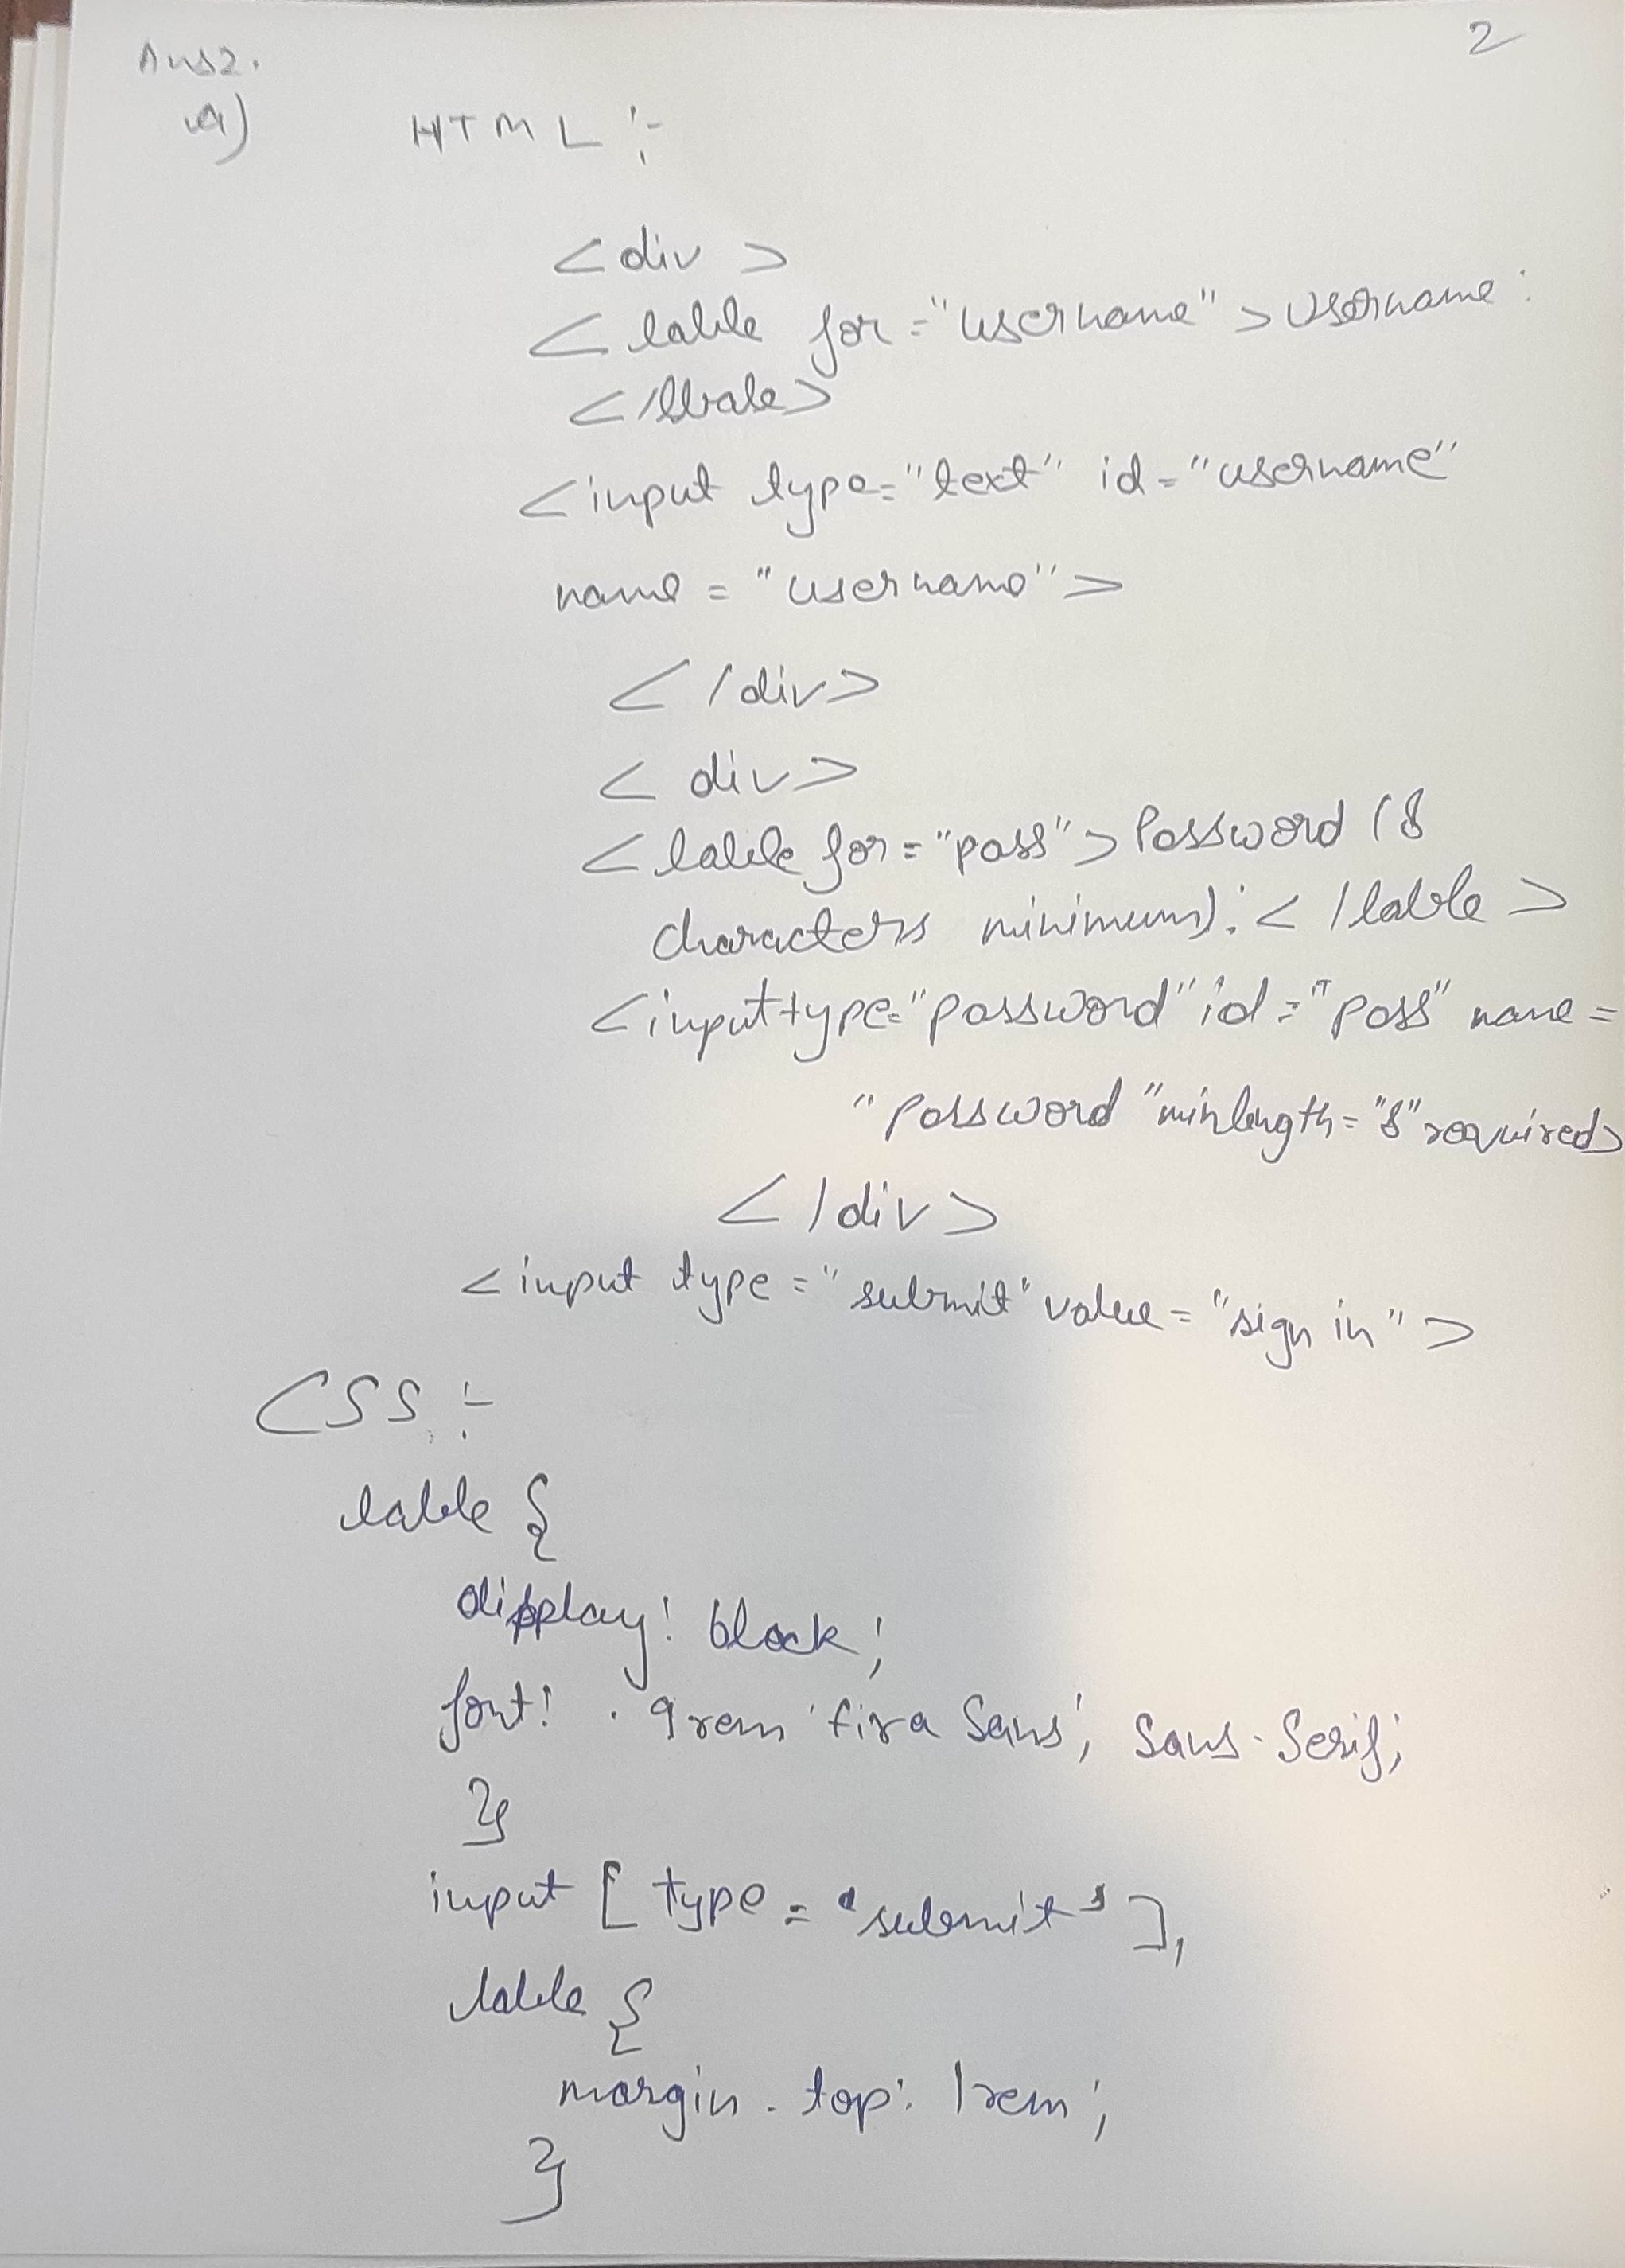 2
Ans2.
a) HTML :-
<div>
<lable for="username">Username:
</lbale>
<input type="text" id="username"
name="username">
</div>
<div>
<lable for="pass">Password (8
characters minimum):</lable>
<input type="password" id="pass" name=
"password" minlength="8" required>
</div>
<input type="submit" value="sign in">
CSS :-
lable {
display: block;
font: .9rem 'fira Sans', Sans-Serif;
}
input [type="submit"],
lable {
margin-top: 1rem;
}